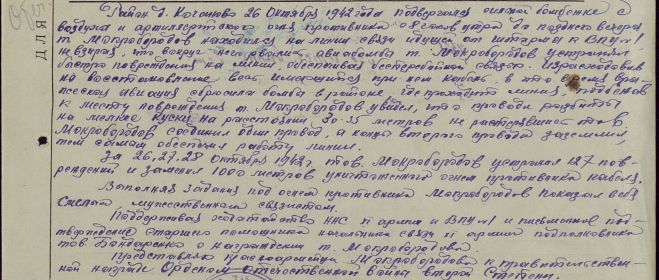 ДЛЯ
Район д. Кочиново 26 октября 1942 года подвергался сильной бомбежке с
воздуха и артиллерийского огня противника. С 6 часов утра до позднего вечера
т. Мокробородов находился на линии связи идущей от штарма к ВПУ №1
невзирая, что вокруг неё рвались авиабомбы т. Мокробородов устранял
быстро повреждения на линии, обеспечивая бесперебойной связью. Израсходовав
на восстановление весь имеющийся при нем кабель, в это время вра-
жеская авиация сбросила бомбы в районе, где проходит линия,
к месту повреждения т. Мокробородов увидел, что провода разбиты
на мелкие куски на расстоянии 30-35 метров не растерявшись тов.
Мокробородов соединил один провод, а концы второго провода заземлил,
тем самым обеспечил работу линии.
За 26, 27, 28 октября 1942 г. тов. Мокробородов устранил 127 пов-
реждений и заменил 1000 метров уничтоженного огнем противника кабеля.
Выполняя задания под огнем противника Мокробородов показал себя
смелым, мужественным связистом.
Поддерживая ходатайство ННС XI армии и ВПУ №1 и письменное под-
тверждение старшего помощника начальника связи XI армии подполковника
тов. Бондаренко о награждении т. Мокробородова.
Представляю красноармейца Мокробородова к правительствен-
ной награде Орденом Отечественной войны второй степени.